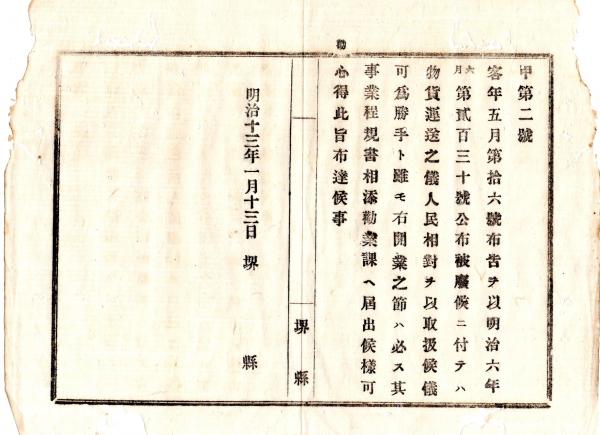 勸
甲第二號
客年五月第拾六號布告ヲ以明治六年
六月第貳百三十號公布被廢候ニ付テハ
物貨運送之儀人民相對ヲ以取扱候儀
可為勝手ト雖モ右開業之節ハ必ス其
事業程規書相添勸業課ヘ屆出候樣可
心得此旨布達候事
堺縣
明治十三年一月十三日 堺縣